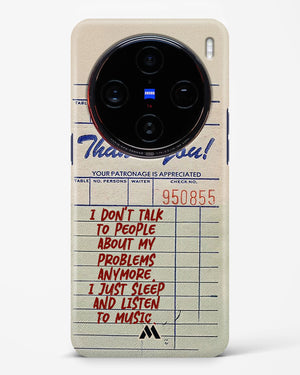 TABLE
Thank You!
YOUR PATRONAGE IS APPRECIATED
TABLE NO. PERSONS WAITER CHECK NO.
950855
I DON'T TALK
TO PEOPLE
ABOUT MY
PROBLEMS
ANYMORE.
I JUST SLEEP
AND LISTEN
TO MUSIC.